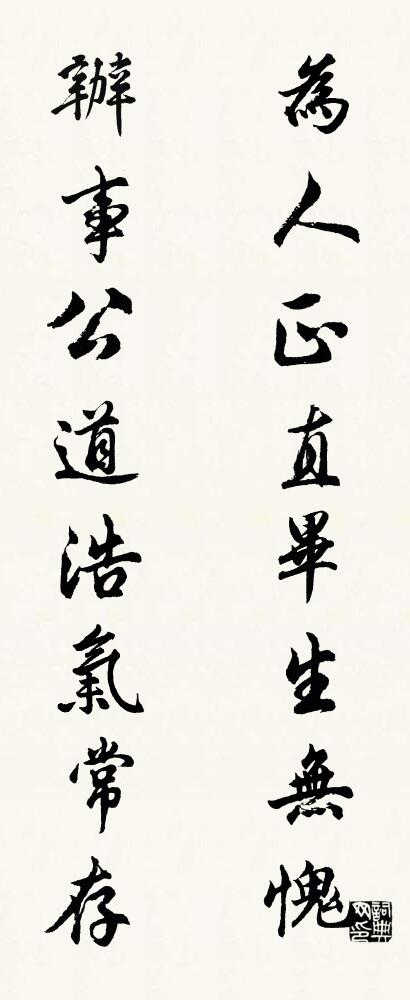 為人正直畢生無愧
辦事公道浩氣常存
詞典
网印